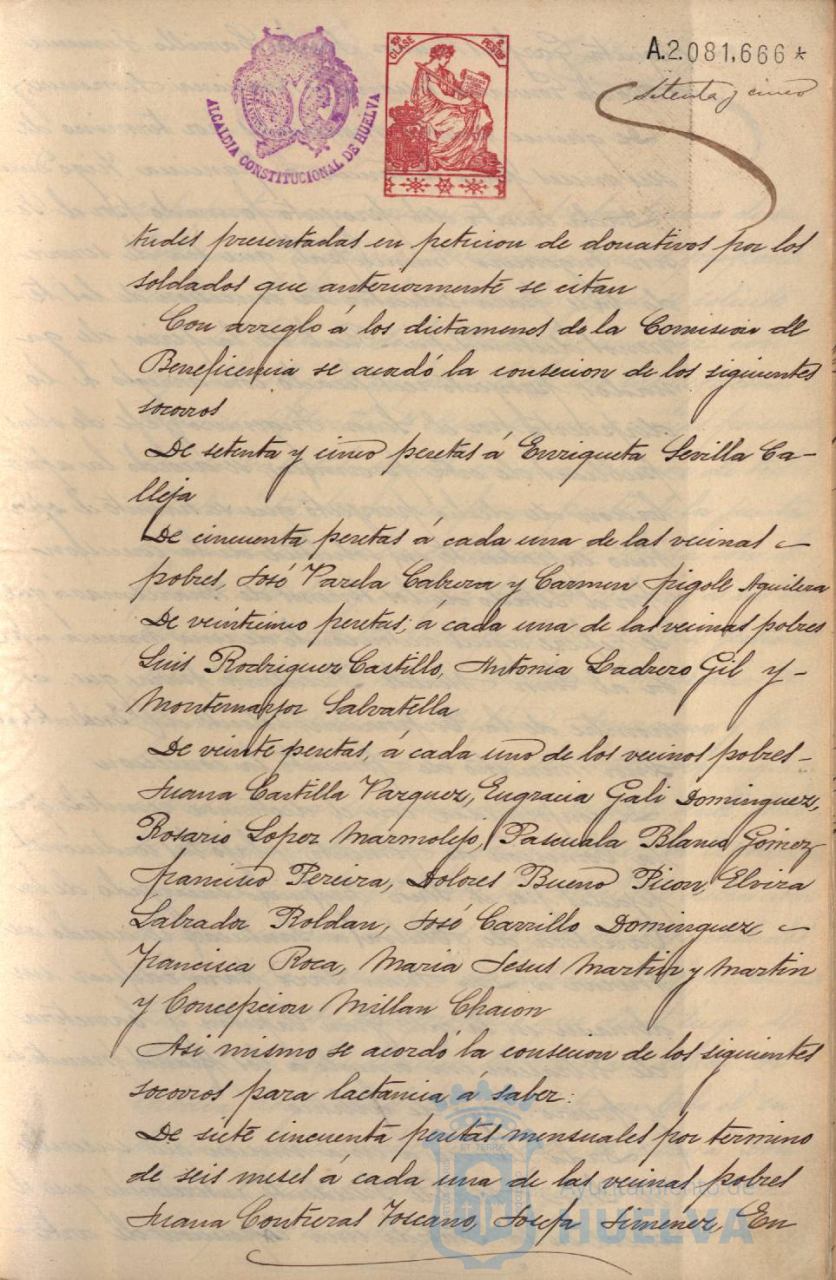 ALCALDIA CONSTITUCIONAL DE HUELVA
10ª CLASE
PESETAS
A.2.081.666 *
Setenta y cinco
tudes presentadas en peticion de donativos por los
soldados que anteriormente se citan
Con arreglo á los dictamenes de la Comision de
Beneficencia se acordó la consecion de los siguientes
socorros
De setenta y cinco pesetas á Enriqueta Sevilla Ca-
lleja
De cincuenta pesetas á cada una de las vecinas
pobres, José Varela Cabrera y Carmen Pigole Aguilera
De veinticinco pesetas, á cada una de las vecinas pobres
Luis Rodriguez Castillo, Antonia Ladrero Gil y-
Montemayor Salvatella
De veinte pesetas, á cada uno de los vecinos pobres-
Juana Castilla Vazquez, Engracia Gali Dominguez,
Rosario Lopez Marmolejo, Pascuala Blanco Gomez
Francisco Pereira, Dolores Bueno Picon, Elvira
Labrador Roldan, José Carrillo Dominguez
Francisca Roca, Maria Jesus Martin y Martin
y Concepcion Millan Chacon
Asi mismo se acordó la consecion de los siguientes
socorros para lactancia á saber:
De siete cincuenta pesetas mensuales por termino
de seis meses á cada una de las vecinas pobres
Juana Contreras Toscano, Josefa Jimenez, En
Ayuntamiento de
HUELVA